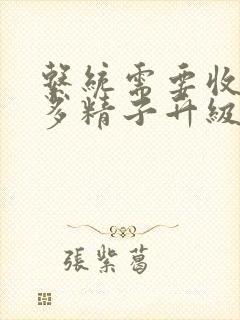 繫統需要收
多精子升級
張紫葛